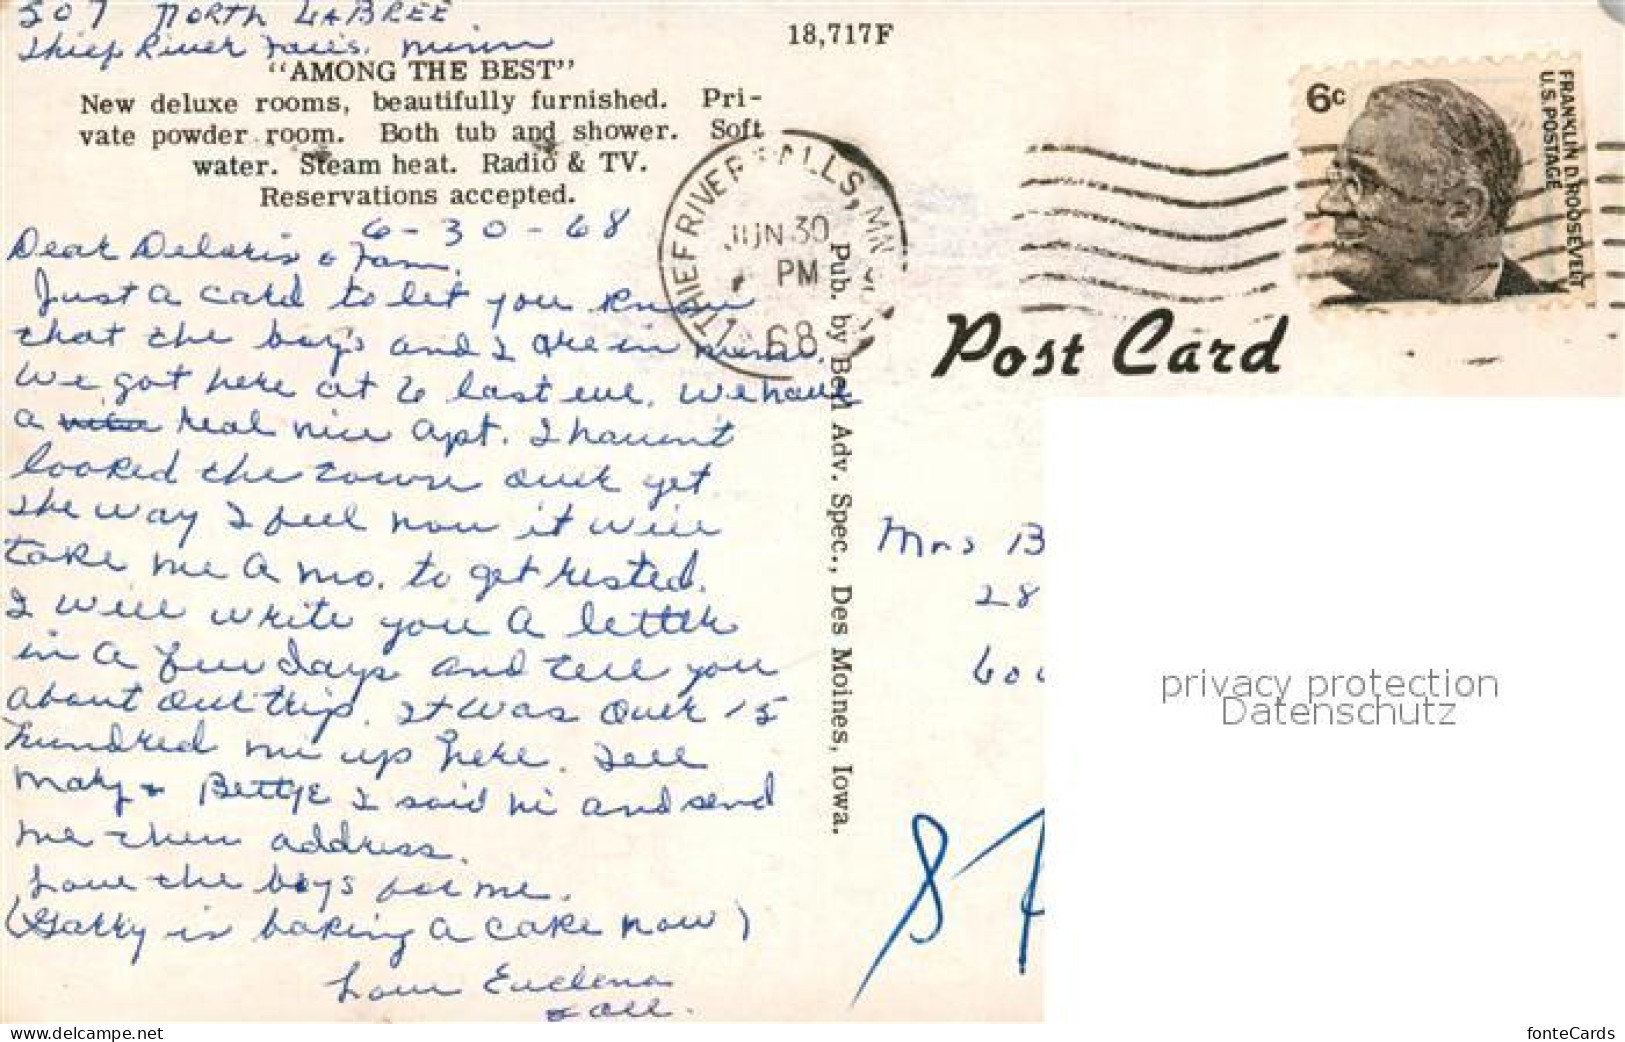 507 NORTH LABREE
Thief River Falls. Minn
18,717F
"AMONG THE BEST"
New deluxe rooms, beautifully furnished. Pri-
vate powder room. Both tub and shower. Soft
water. Steam heat. Radio & TV.
Reservations accepted.
6c
FRANKLIN D. ROOSEVELT
U.S. POSTAGE
THIEF RIVER FALLS, MN
JUN 30
PM
68
Post Card
Pub. by Bell Adv. Spec., Des Moines, Iowa.
6-30-68
Dear Deloris & Fam.
Just a card to let you know
that the boy's and I are in Minn.
We got here at 6 last eve. We have
a real nice apt. I havent
looked the town over yet
The way I feel now it will
take me a mo. to get rested.
I will write you a letter
in a few days and tell you
about our trip. It was over 15
hundred mi up here. Tell
Mary & Bettye I said hi and send
me their address.
Love the boys for me.
(Garry is baking a cake now)
Love Euclena
& all.
Mrs B
28
60
87
privacy protection
Datenschutz
www.delcampe.net
fonteCards